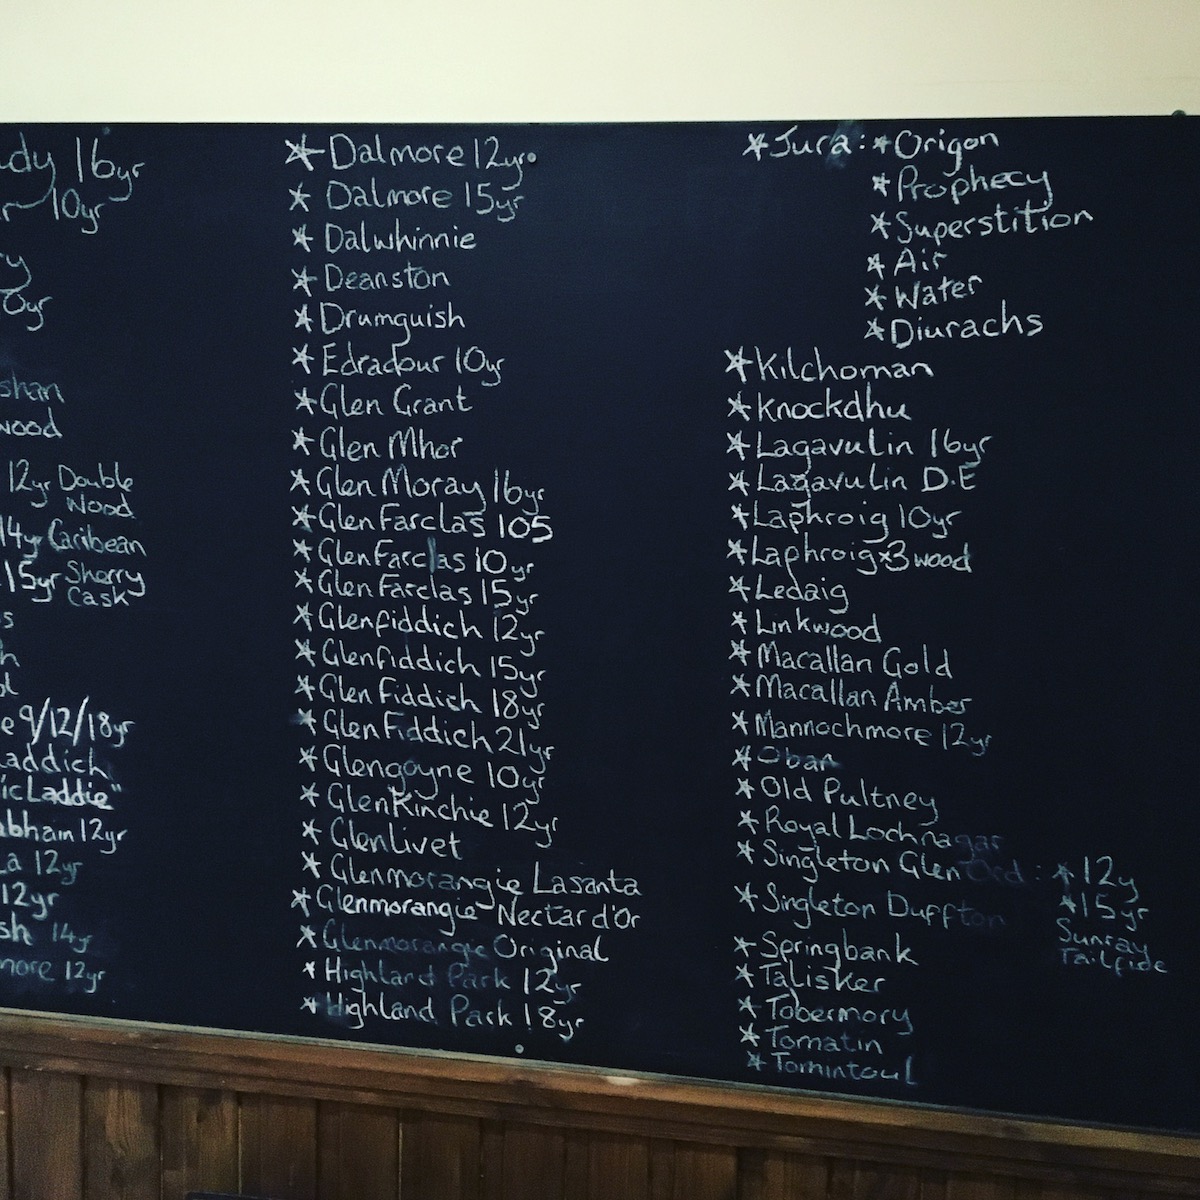 16yr
10yr
0yr
shan
wood
12yr Double
Wood
14yr Caribean
15yr Sherry
Cask
9/12/18yr
addich
icLaddie"
abham 12yr
La 12yr
12yr
sh 14yr
more 12yr
* Dalmore 12yr.
* Dalmore 15yr
* Dalwhinnie
* Deanston
* Drumguish
* Edradour 10yr
* Glen Grant
* Glen Mhor
* Glen Moray 16yr
* Glen Farclas 105
* Glen Farclas 10yr
* Glen Farclas 15yr
* Glenfiddich 12yr
* Glenfiddich 15yr
* Glen Fiddich 18yr
* Glen Fiddich 21yr
* Glengoyne 10yr
* GlenKinchie 12yr
* Glenlivet
* Glenmorangie Lasanta
* Glenmorangie Nectar d'Or
* Glenmorangie Original
* Highland Park 12yr
* Highland Park 18yr
* Jura: * Origon
* Prophecy
* Superstition
* Air
* Water
* Diurachs
* Kilchoman
* Knockdhu
* Lagavulin 16yr
* Lagavulin D.E
* Laphroig 10yr
* Laphroig * 3 wood
* Ledaig
* Linkwood
* Macallan Gold
* Macallan Amber
* Mannochmore 12yr
* Oban
* Old Pultney
* Royal Lochnagar
* Singleton Glen Ord : * 12y
* 15yr
* Singleton Duffton
Sunray
Tailfide
* Springbank
* Talisker
* Tobermory
* Tomatin
* Tomintoul